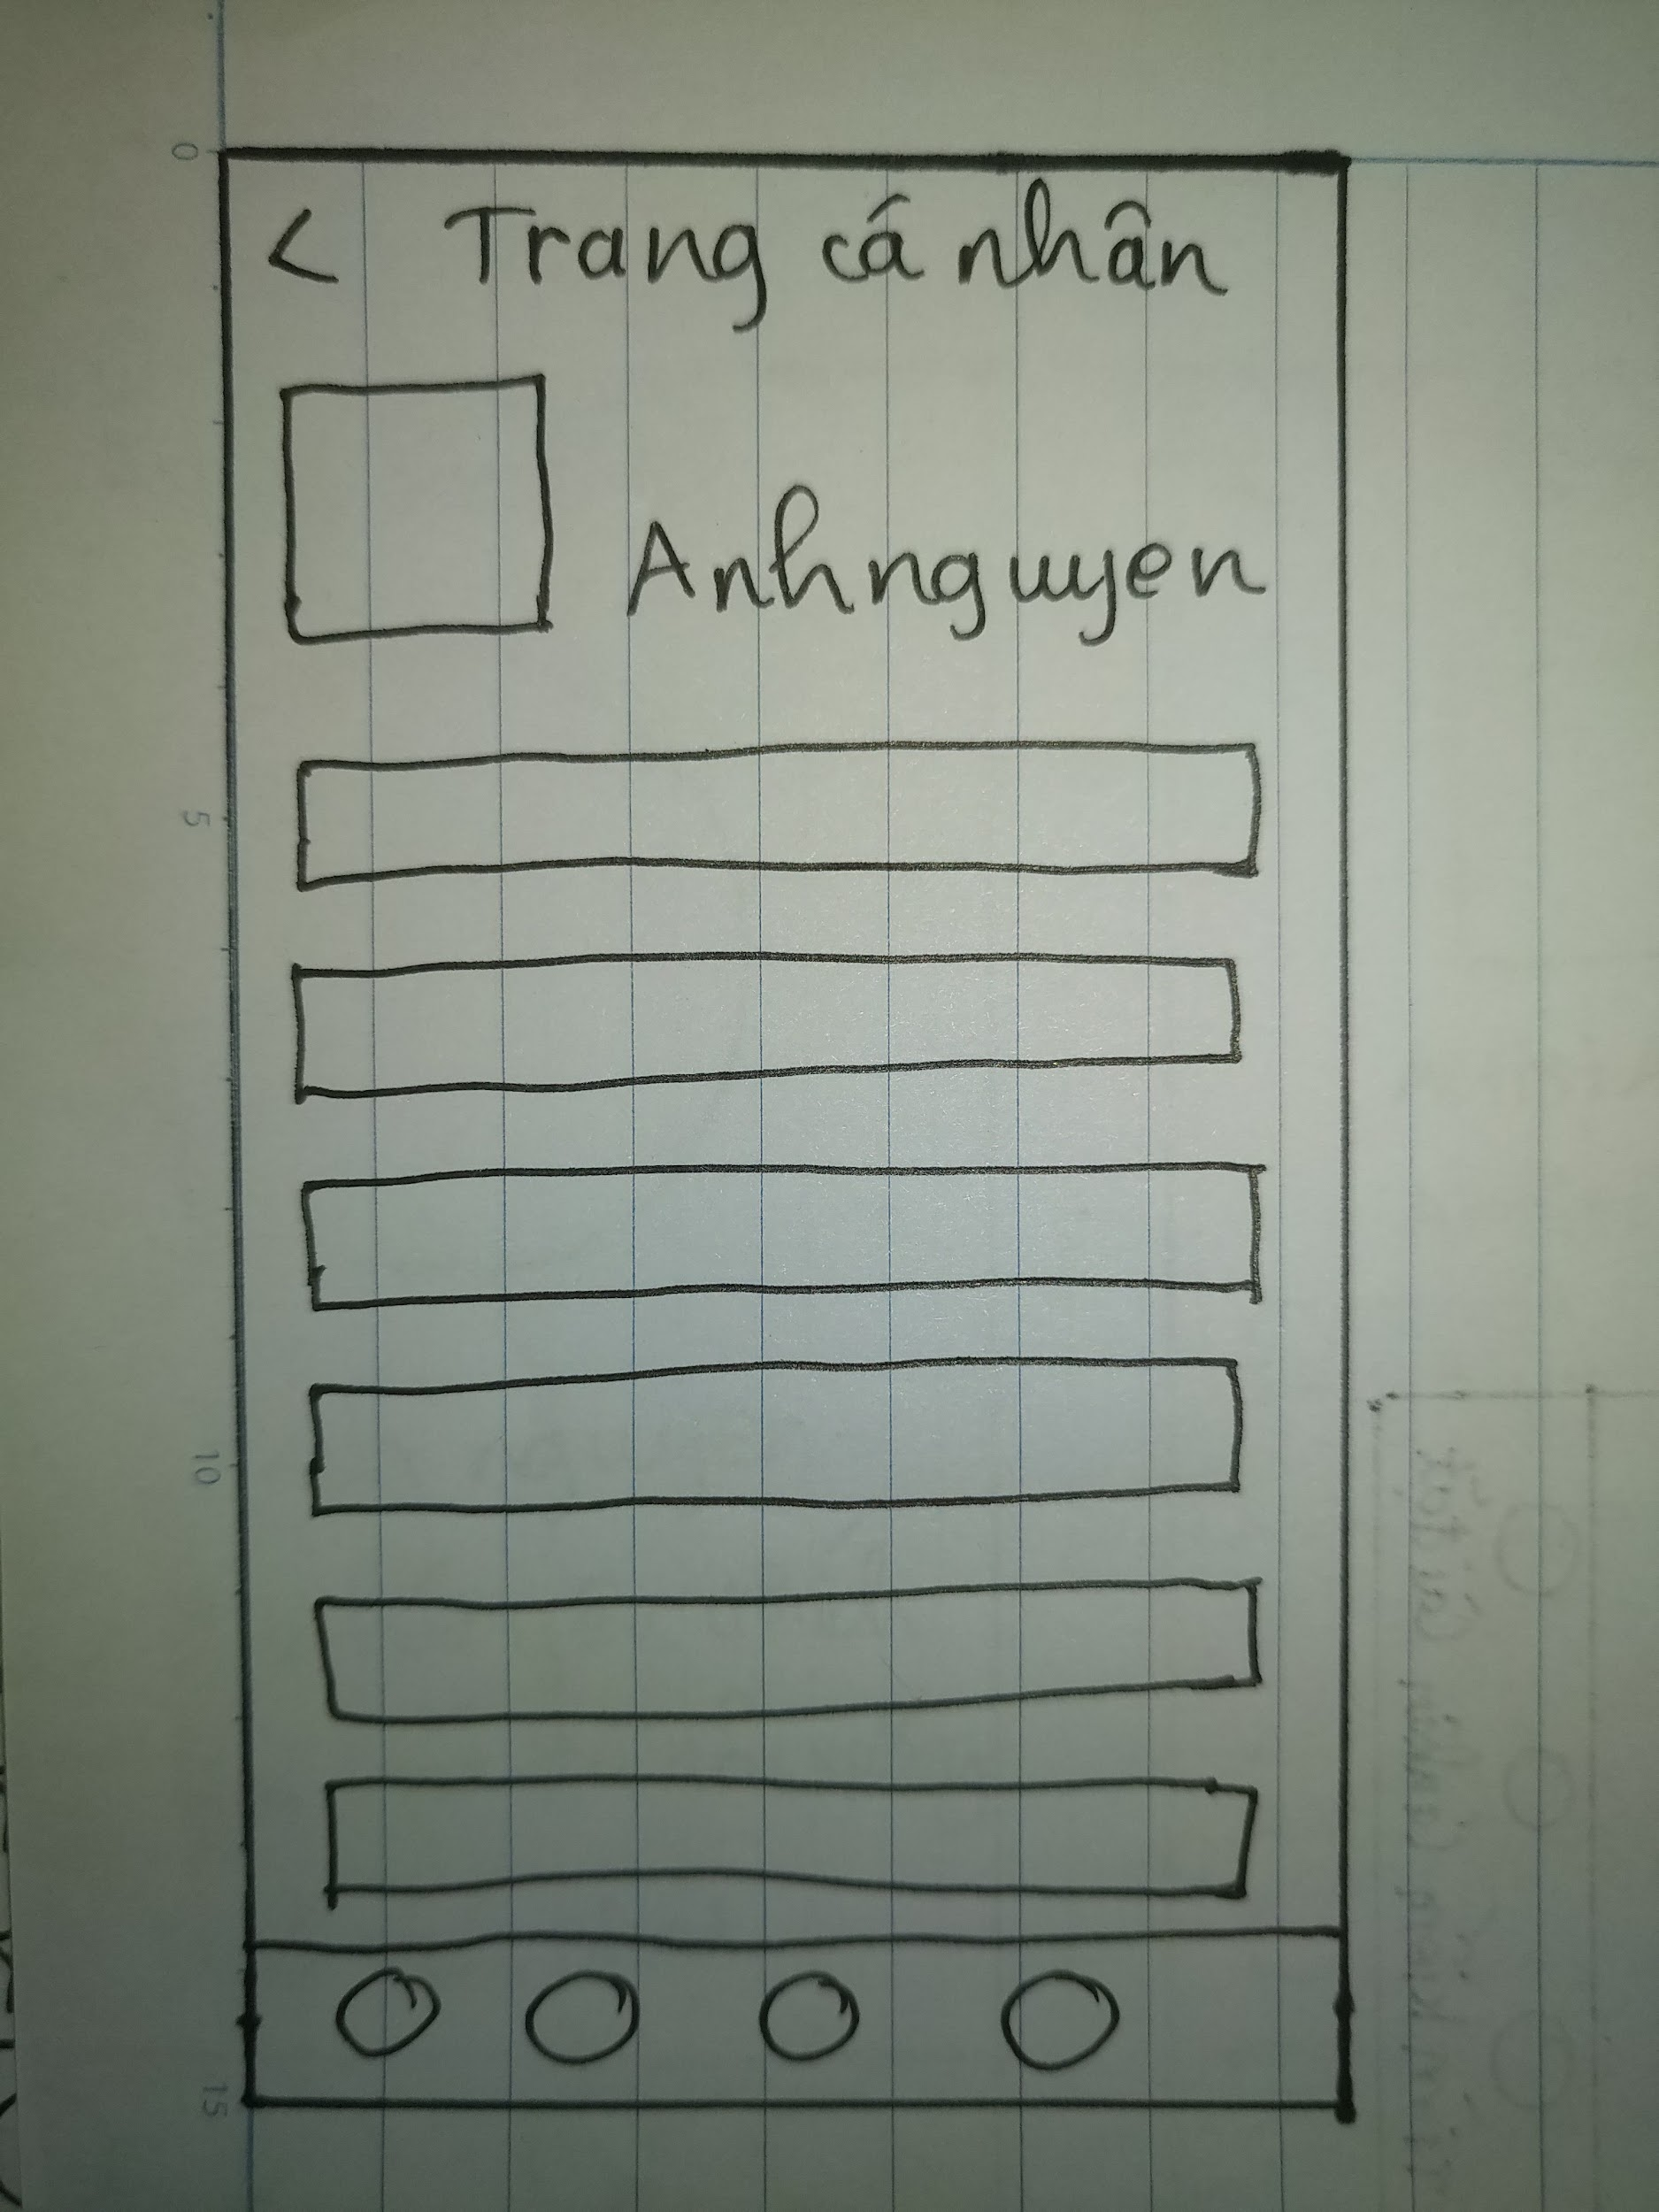 < Trang cá nhân
Anhnguyen
0
5
10
15